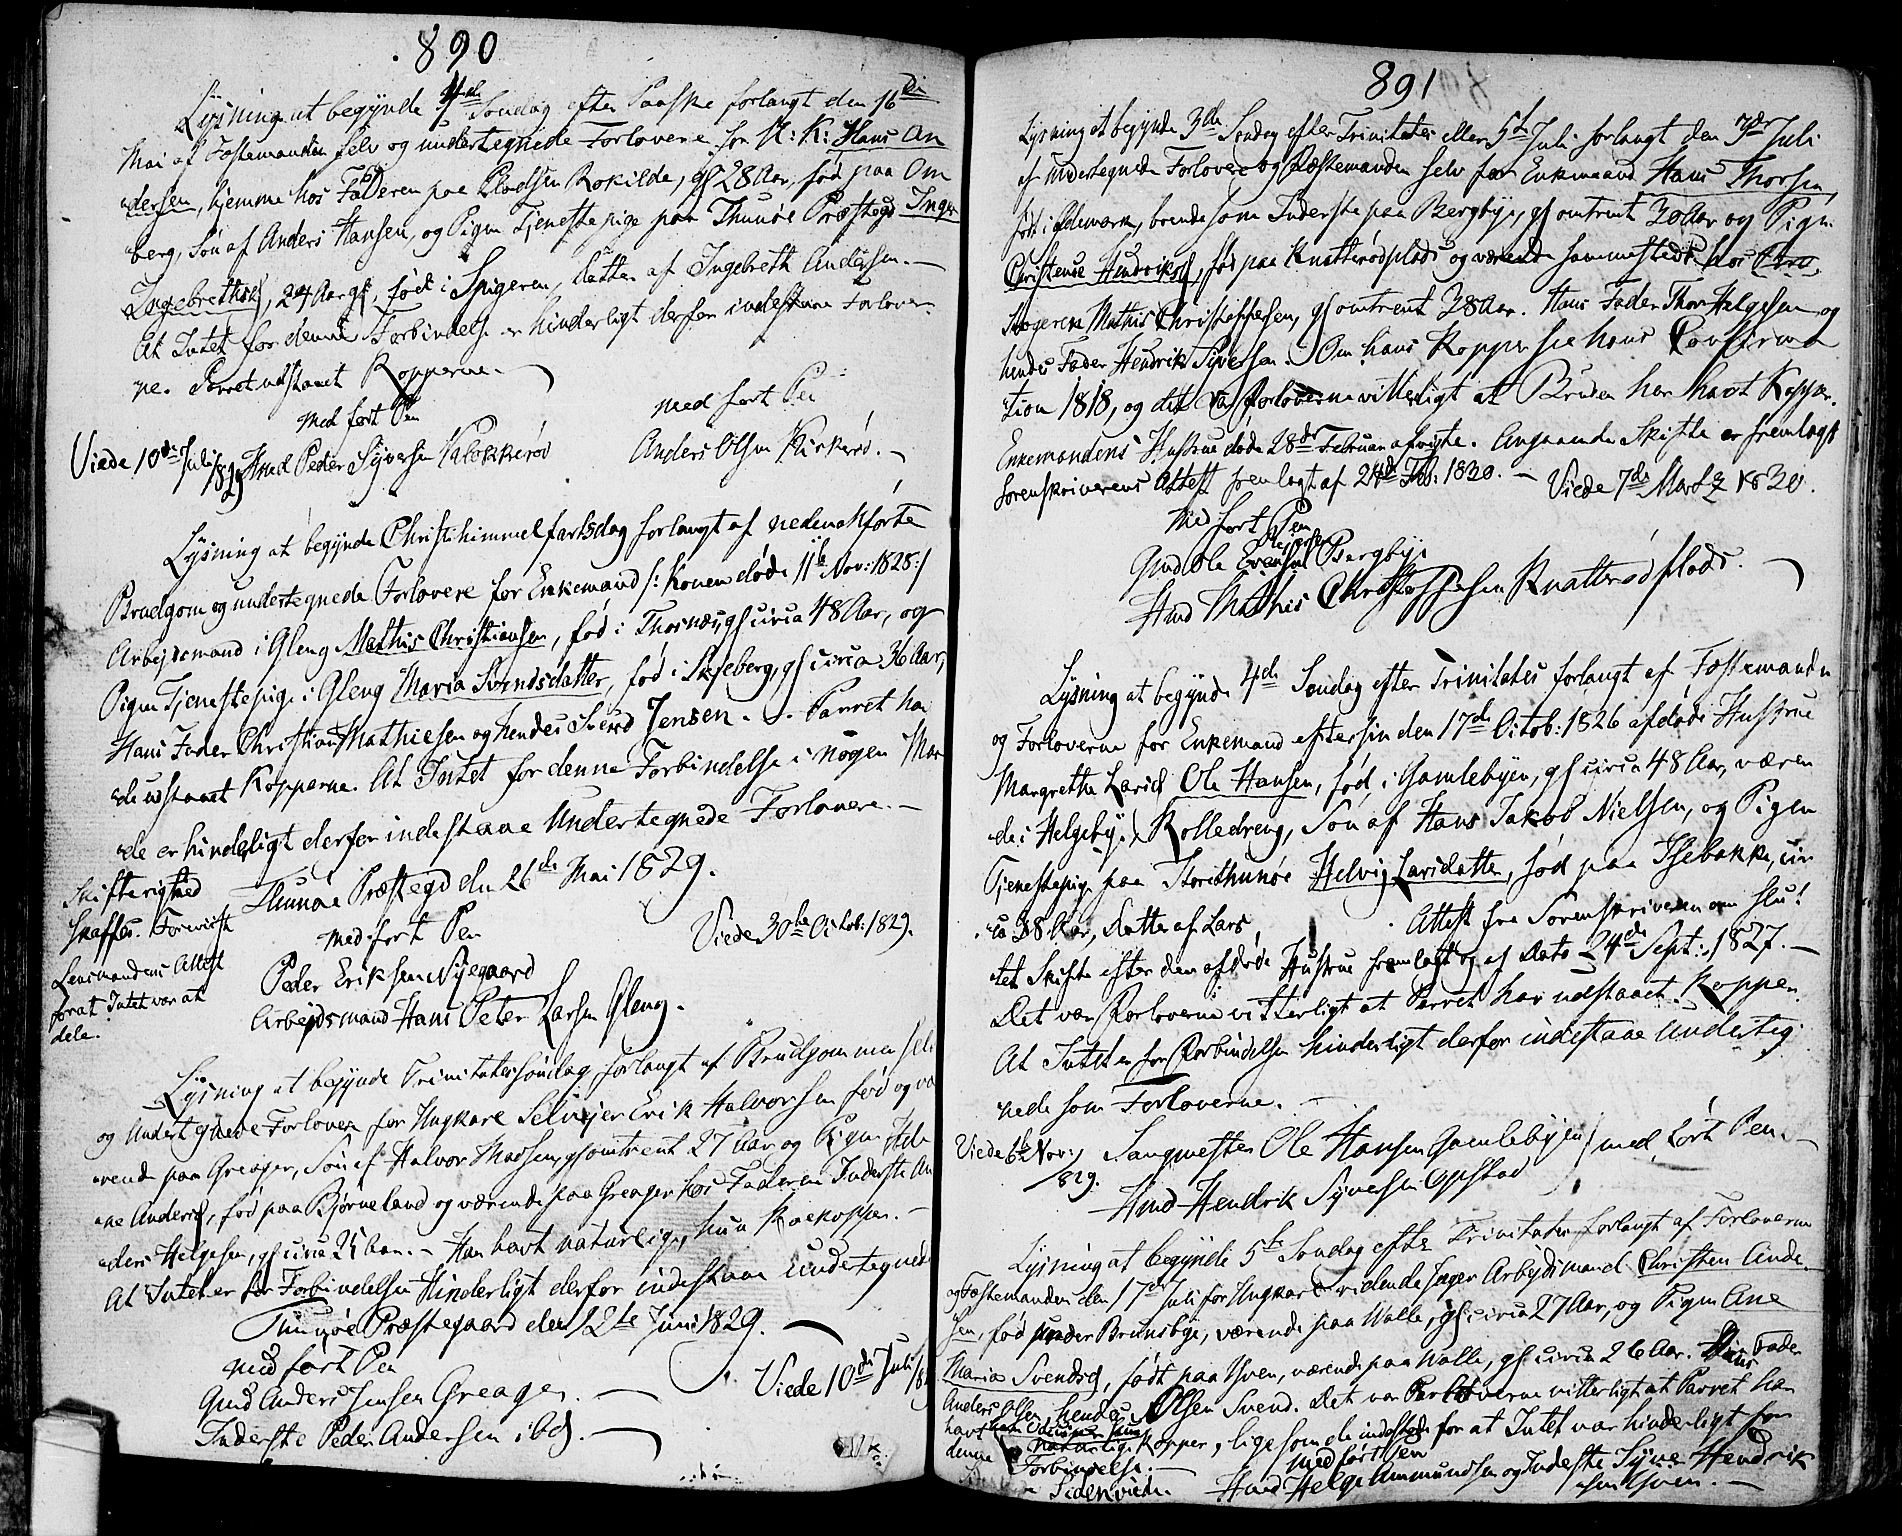 890
Lysning at begynde 4de Søndag efter Paaske forlangt den 16de
Mai af Fæstemanden selv og undertegnede Forlovere for U: K: Hans An
dersen, hjemme hos Faderen paa Pladsen Rokilde, gl 28 Aar, fød paa Om
berg, Søn af Anders Hansen, og Pigen Tjenestepige paa Thunøe Præstegd Inger
Ingebrethsd, 24 Aar gl, født i Spigeren, datter af Ingebreth Andersen. —
At Intet for denne Forbindelse er hinderligt derfor indestaae Forlover
ne. Parret udstaaet Kopperne. —
med ført Pen
med ført Pen
Viede 10de Juli 1829
Hmd Peder Syversen Valokkerød
Anders Olsen Kirkerød. —
Lysning at begynde Christi himmelfartsdag forlangt af nedenanførte
Brudgom og undertegnede Forlovere for Enkemand /: Konen døde 11te Nov: 1828 :/
Arbejdsmand i Gleng Mathis Christiansen, fød i Thosnæs, gl circa 48 Aar, og
Pigen Tjenestepige i Gleng Maria Svendsdatter, fød i Skjeberg, gl circa 36 Aar,
Hans Fader Christian Mathiesen og hendes Svend Jensen. — Parret ha
de udstaaet Kopperne. At Intet for denne Forbindelse i nogen Maa
de er hinderligt derfor indestaae Undertegnede Forlovere. —
Thunøe Præstegd den 26de Mai 1829.
Skifterighed
skaffes. Foreviist
Lensmandens Attest
for at Intet var at
dele.
med ført Pen
Viede 30te Octob: 1829.
Peder Eriksen Nyegaard
Arbejdsmand Hans Peter Larsen Gleng.
Lysning at begynde Trinitatissøndag forlangt af Brudgommen selv
og Undertegnede Forlovere for Ungkarl Selvejer Erik Halvorsen fød og væ
rende paa Greager, Søn af Halvor Madsen, gl omtrent 27 Aar og Pigen
ne Andersd, fød paa Bjørneland og værende paa Greager hos Faderen Inderste An
ders Helgesen, gl circa 25 Aar. — Han havt naturlige, hun Koekopper. —
At Intet er for Forbindelsen Hinderligt derfor indestaae Undertegnede
Thunøe Præstegaard den 12te Juni 1829. —
med ført Pen
Viede 10de Juli 18
Gmd Anders Jensen Greager. —
Inderste Peder Andersen ibd. —
891
Lysning at begynde 3de Søndag efter Trinitatis eller 5te Juli forlangt den 3de Juli
af Undertegnede Forlovere og Fæstemanden selv for Enkemand Hans Thorsen,
født i, boende som Inderste paa Bergbye, gl omtrent 30 Aar og Pigen
Christense Hendriksd, fød paa Knatterødplads og værende sammesteds hos
Mathis Christophersen, gl omtrent 38 Aar. Hans Fader Thor Helgesen og
hendes Fader Hendrik Syversen. Om hans Kopper see hans Confirma
tion 1818, og det var Forloverne vitterligt at Bruden har havt Kopper.
Enkemandens Hustrue døde 28de Februar afvigte. Angaaende Skifte er fremlagt
Sorenskriverens Attest fremlagt af 24de Feb: 1830. — Viede 7de Martz 1830.
Med ført Pen
Gmd Ole Bergbye
Hmd Mathis Christophersen Knatterødplads. —
Lysning at begynde 4de Søndag efter Trinitatis forlangt af Fæstemanden
og Forloverne for Enkemand efter sin den 17de Octob: 1826 afdøde Hustrue
Margrethe Larsd Ole Hansen, fød i Gamlebyen, gl circa 48 Aar, væren
de i Helgeby, Rolledreng, Søn af Hans Jakob Nielsen, og Pigen
Tjenestepige paa Storethunøe Helvig Larsdatter, fød paa Isebakke, cir
ca 38 Aar, Datter af Lars, Attest fra Sorenskriveren om slut
tet Skifte efter den afdøde Hustrue fremlagt og af Dato 24de Sept: 1827. —
Det var Forloverne vitterligt at Parret har udstaaet Kopper.
At Intet er for Forbindelsen hinderligt derfor indestaae Underteg
nede som Forloverne. —
Viede 6te Nov:
1829.
Sangmester Ole Hansen Gamlebyen / med ført Pen. —
Hmd Hendrik Syvesen Opstad
Lysning at begynde 5te Søndag efter Trinitatis forlangt af Forloverne
og Fæstemanden den 17de Juli for Ungkarl ridende Jæger Arbejdsmand Christen Ande
sen, fød under Brunsbye, værende paa Walle, gl circa 27 Aar, og Pigen Ane
Maria Svendsd, født paa Hven, værende paa Walle, gl circa 26 Aar. Hans Fader
Anders Olsen, hendes Olsen Svend. Det var Forloverne vitterligt at Parret har
havt naturlige Kopper, ligesom de indestode for at Intet var hinderligt for
denne Forbindelse. —
med ført Pen
Siden viede. Hmd Helge Ammundsen og Inderste Syver Hendrik
sen Hven. —